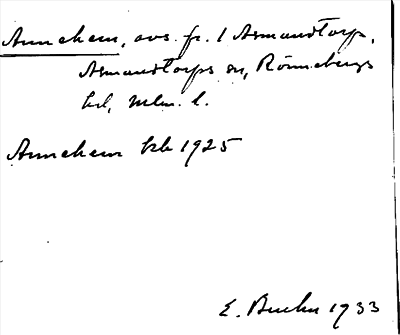 Annehem, avs. fr. 1 Asmundtorp,
Asmundtorps sn, Rönnebergs
hd, Mlm. l.
Annehem kb 1925
E. 1933